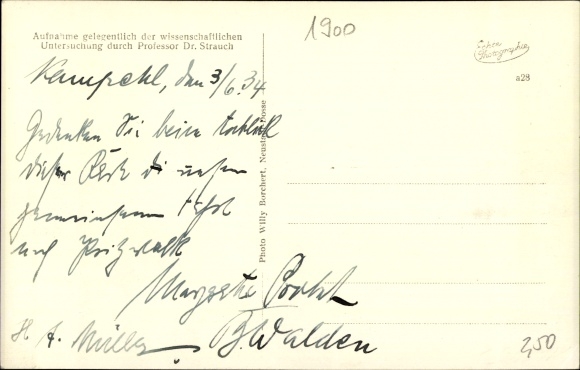 Aufnahme gelegentlich der wissenschaftlichen
Untersuchung durch Professor Dr. Strauch
1900
Echte
Photographie
a28
Kampehl, den 3/6.34
Gedenken Sie beim Anblick
dieser Karte
gemeinsamen Fahrt
nach Pritzwalk
Margarete
H. A. Müller, B. Walden
Photo Willy Borchert, Neustadt-Dosse
2,50